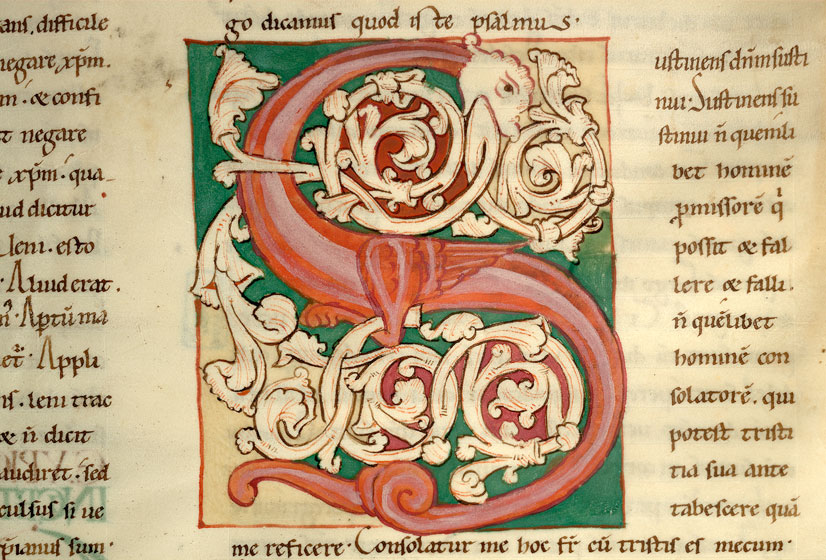 ans, difficile
negare xp̄m.
m̄. & confi
t negare
xp̄m. qua
ud dicitur
leni. esto
Aliud erat.
Aptū ma
Appli
leni trac
& n̄ dicit
audiret. sed
culsus si ue
pianus sum.
go dicamus quod iste psalmus.
S
ustinens dn̄m susti
nui. Sustinens su
stinui n̄ quēlibet
bet hominē
ꝓmissorē q̄
possit & fal
lere & falli.
n̄ quēlibet
hominē con
solatorē. qui
potest tristi
tia sua ante
tabescere quā
me reficere. Consolatur me hoc fr̄ cū tristis es mecum.